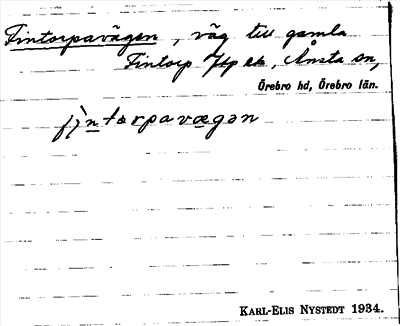 Tintorpavägen, väg till gamla
Tintorp, Ånsta sn,
Örebro hd, Örebro län.
Karl-Elis Nystedt 1934.